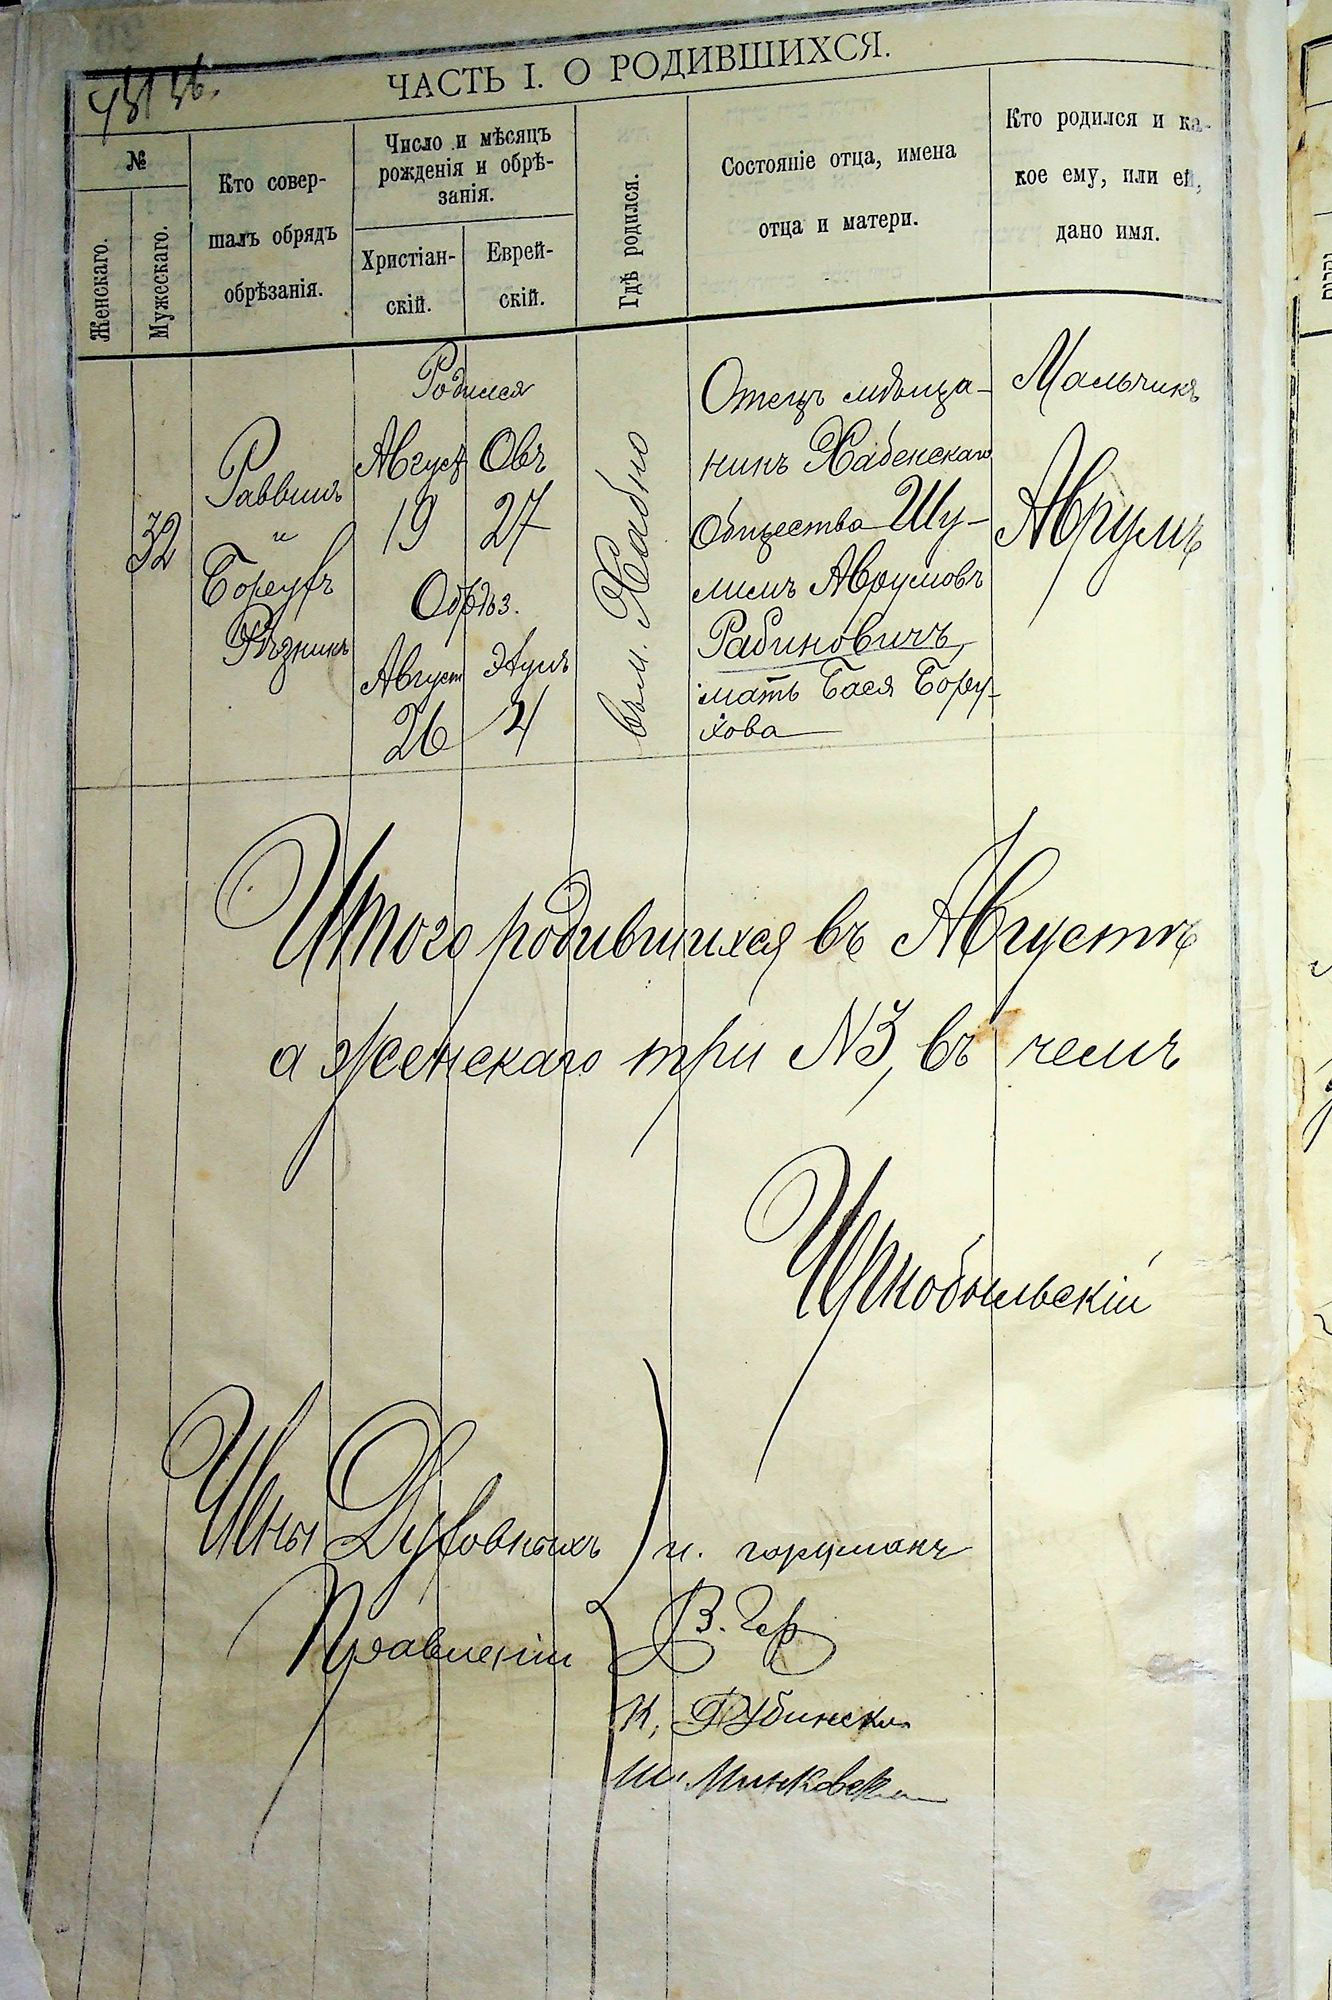 ЧАСТЬ I. О РОДИВШИХСЯ.
№
Женскаго.
Мужескаго.
Кто совер-
шалъ обрядъ
обрѣзанія.
Число и мѣсяцъ
рожденія и обрѣ-
занія.
Христіан-
скій.
Еврей-
скій.
Гдѣ родился.
Состояніе отца, имена
отца и матери.
Кто родился и ка-
кое ему, или ей,
дано имя.
32
Раввинъ
и
Борухъ
Рѣзникъ
Родился
Август
19
Овъ
27
Обрѣз.
Август
26
Элулъ
4
въ м. Хабно
Отецъ мѣща-
нинъ Хабенскаго
Общества Шу-
лимъ Аврумовъ
Рабиновичъ,
мать Бася Бору-
хова
Мальчикъ
Аврумъ
Итого родившихся въ Августѣ
а женскаго три №3, въ чемъ
Чернобыльскій
Члены Духовныхъ
Правленій
В. Гер
Ш. Минковск